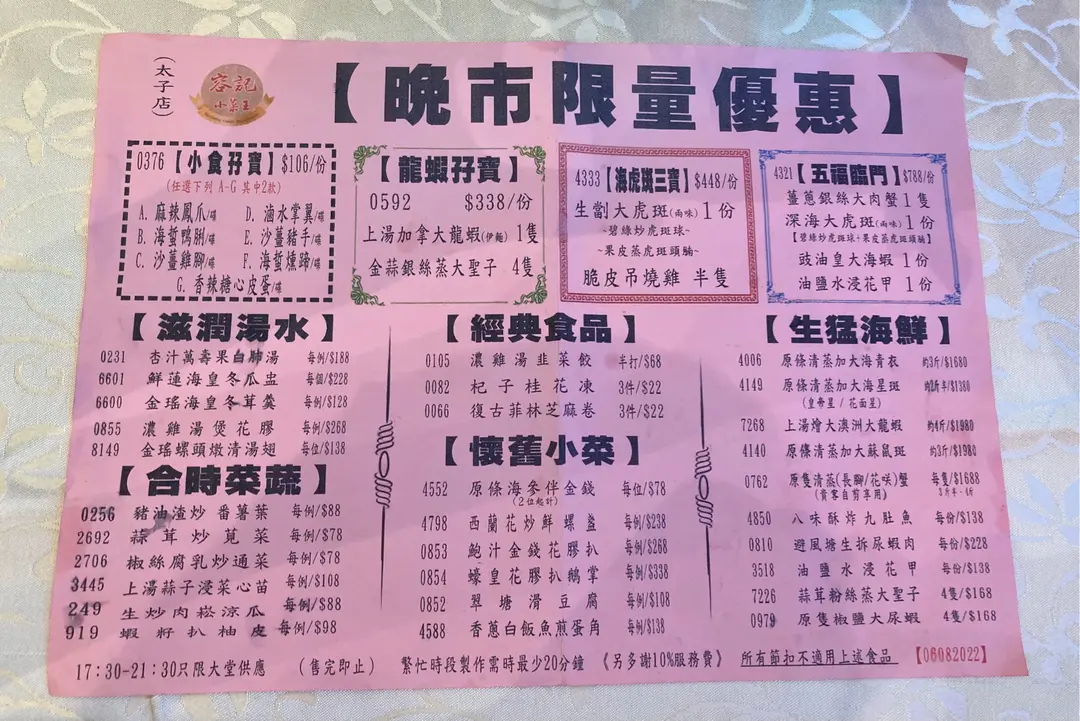 (太子店)
容記
小菜王
【晚市限量優惠】
0376【小食孖寶】$106/份
(任選下列 A-G 其中2款)
A. 麻辣鳳爪/碟
D. 滷水掌翼/碟
B. 海蜇鴨脷/碟
E. 沙薑豬手/碟
C. 沙薑雞腳/碟
F. 海蜇燻蹄/碟
G. 香辣糖心皮蛋/碟
【龍蝦孖寶】
0592 $338/份
上湯加拿大龍蝦(伊麵) 1隻
金蒜銀絲蒸大聖子 4隻
4333【海虎斑三寶】$448/份
生劏大虎斑(兩味) 1份
~碧綠炒虎斑球~
~果皮蒸虎斑頭腩~
脆皮吊燒雞 半隻
4321【五福臨門】$788/份
薑蔥銀絲大肉蟹 1隻
深海大虎斑(兩味) 1份
【碧綠炒虎斑球·果皮蒸虎斑頭腩】
豉油皇大海蝦 1份
油鹽水浸花甲 1份
【滋潤湯水】
0231 杏汁萬壽果白肺湯 每例/$188
6601 鮮蓮海皇冬瓜盅 每個/$228
6600 金瑤海皇冬茸羹 每例/$128
0855 濃雞湯煲花膠 每例/$268
8149 金瑤螺頭燉清湯翅 每位/$138
【合時菜蔬】
0256 豬油渣炒番薯葉 每例/$88
2692 蒜茸炒莧菜 每例/$78
2706 椒絲腐乳炒通菜 每例/$78
3445 上湯蒜子浸菜心苗 每例/$108
249 生炒肉崧涼瓜 每例/$88
919 蝦籽扒柚皮 每例/$98
【經典食品】
0105 濃雞湯韭菜餃 半打/$68
0082 杞子桂花凍 3件/$22
0066 復古菲林芝麻卷 3件/$22
【懷舊小菜】
4552 原條海參伴金錢 每位/$78
(2位起計)
4798 西蘭花炒鮮螺盞 每例/$238
0853 鮑汁金錢花膠扒 每例/$268
0854 蠔皇花膠扒鵝掌 每例/$338
0852 翠塘滑豆腐 每例/$108
4588 香蔥白飯魚煎蛋角 每例/$138
【生猛海鮮】
4006 原條清蒸加大海青衣 約3斤/$1680
4149 原條清蒸加大海星斑 約2斤半/$1380
(皇帝星 / 花面星)
7268 上湯燴大澳洲大龍蝦 約4斤/$1980
4140 原條清蒸加大蘇鼠斑 約3斤/$1980
0762 原隻清蒸(長腳/花咲)蟹 每隻/$1688
(貴客自剪享用) 3斤半-4斤
4850 八味酥炸九肚魚 每份/$138
0810 避風塘生拆尿蝦肉 每份/$228
3518 油鹽水浸花甲 每份/$138
7226 蒜茸粉絲蒸大聖子 4隻/$168
0979 原隻椒鹽大尿蝦 4隻/$168
17:30-21:30只限大堂供應 (售完即止) 繁忙時段製作需時最少20分鐘 《另多謝10%服務費》 所有節扣不適用上述食品 【06082022】